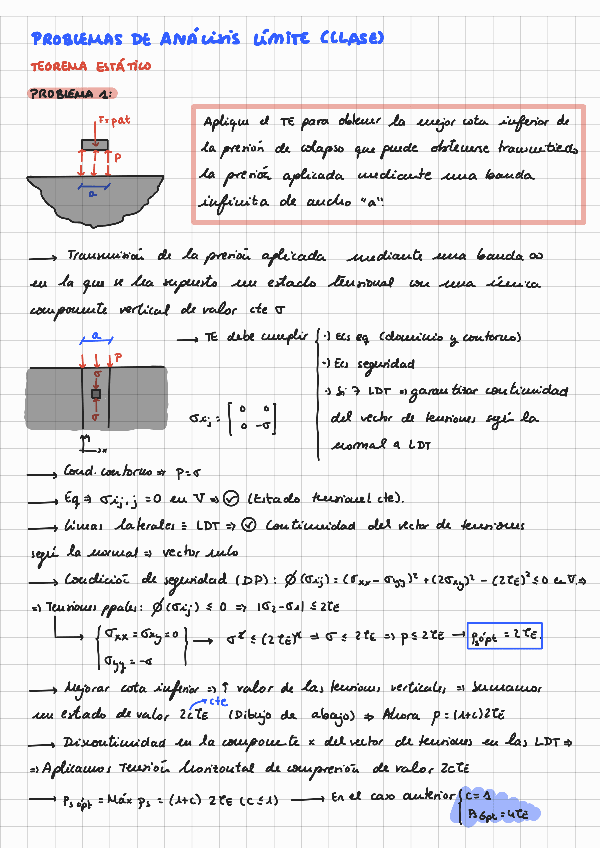 PROBLEMAS DE ANÁLISIS LÍMITE (CLASE)
TEOREMA ESTÁTICO
PROBLEMA 1:
F=p·a·t
p
a
Aplique el TE para obtener la mejor cota inferior de
la presión de colapso que puede obtenerse transmitiendo
la presión aplicada mediante una banda
infinita de ancho "a"
→ Transmisión de la presión aplicada mediante una banda ∞
en la que se ha supuesto un estado tensional con una única
componente vertical de valor cte σ
a
p
σ
σ
→ TE debe cumplir
·) Ecs eq (dominio y contorno)
·) Ecs seguridad
·) Si ∃ LDT ⇒ garantizar continuidad
del vector de tensiones según la
normal a LDT
σxij = [0 0
0 -σ]
x
→ Cond. contorno ⇒ P=σ
→ Eq ⇒ σij,j = 0 en V ⇒ ✓ (Estado tensional cte).
→ Líneas laterales ≡ LDT ⇒ ✓ Continuidad del vector de tensiones
según la normal ⇒ vector nulo
→ Condición de seguridad (DP): ∅(σij) = (σxx - σyy)² + (2σxy)² - (2τE)² ≤ 0 en V ⇒
⇒ Tensiones ppales: ∅(σij) ≤ 0 ⇒ |σ2-σ1| ≤ 2τE
{σxx = σxy = 0
σyy = -σ} → σ² ≤ (2τE)² ⇒ σ ≤ 2τE ⇒ p ≤ 2τE → psópt = 2τE
→ Mejorar cota inferior ⇒ ↑ valor de las tensiones verticales ⇒ Sumamos
cte
un estado de valor 2cτE (Dibujo de abajo) ⇒ Ahora p=(1+c)2τE
→ Discontinuidad en la componente x del vector de tensiones en las LDT ⇒
⇒ Aplicamos Tensión horizontal de compresión de valor 2cτE
→ Psópt = Máx ps = (1+c) 2τE (c≤1) → En el caso anterior {c=1
Psópt = 4τE